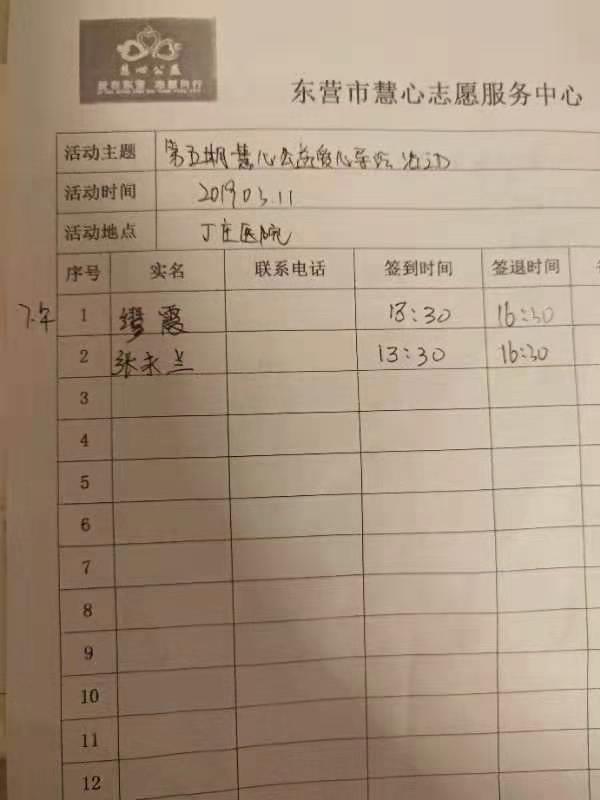 慧心公益
东营市慧心志愿服务中心
活动主题 第五期慧心公益爱心导医活动
活动时间 2019 03.11
活动地点 丁庄医院
序号 实名 联系电话 签到时间 签退时间
下午 1 缪霞 13:30 16:30
2 张永兰 13:30 16:30
3
4
5
6
7
8
9
10
11
12